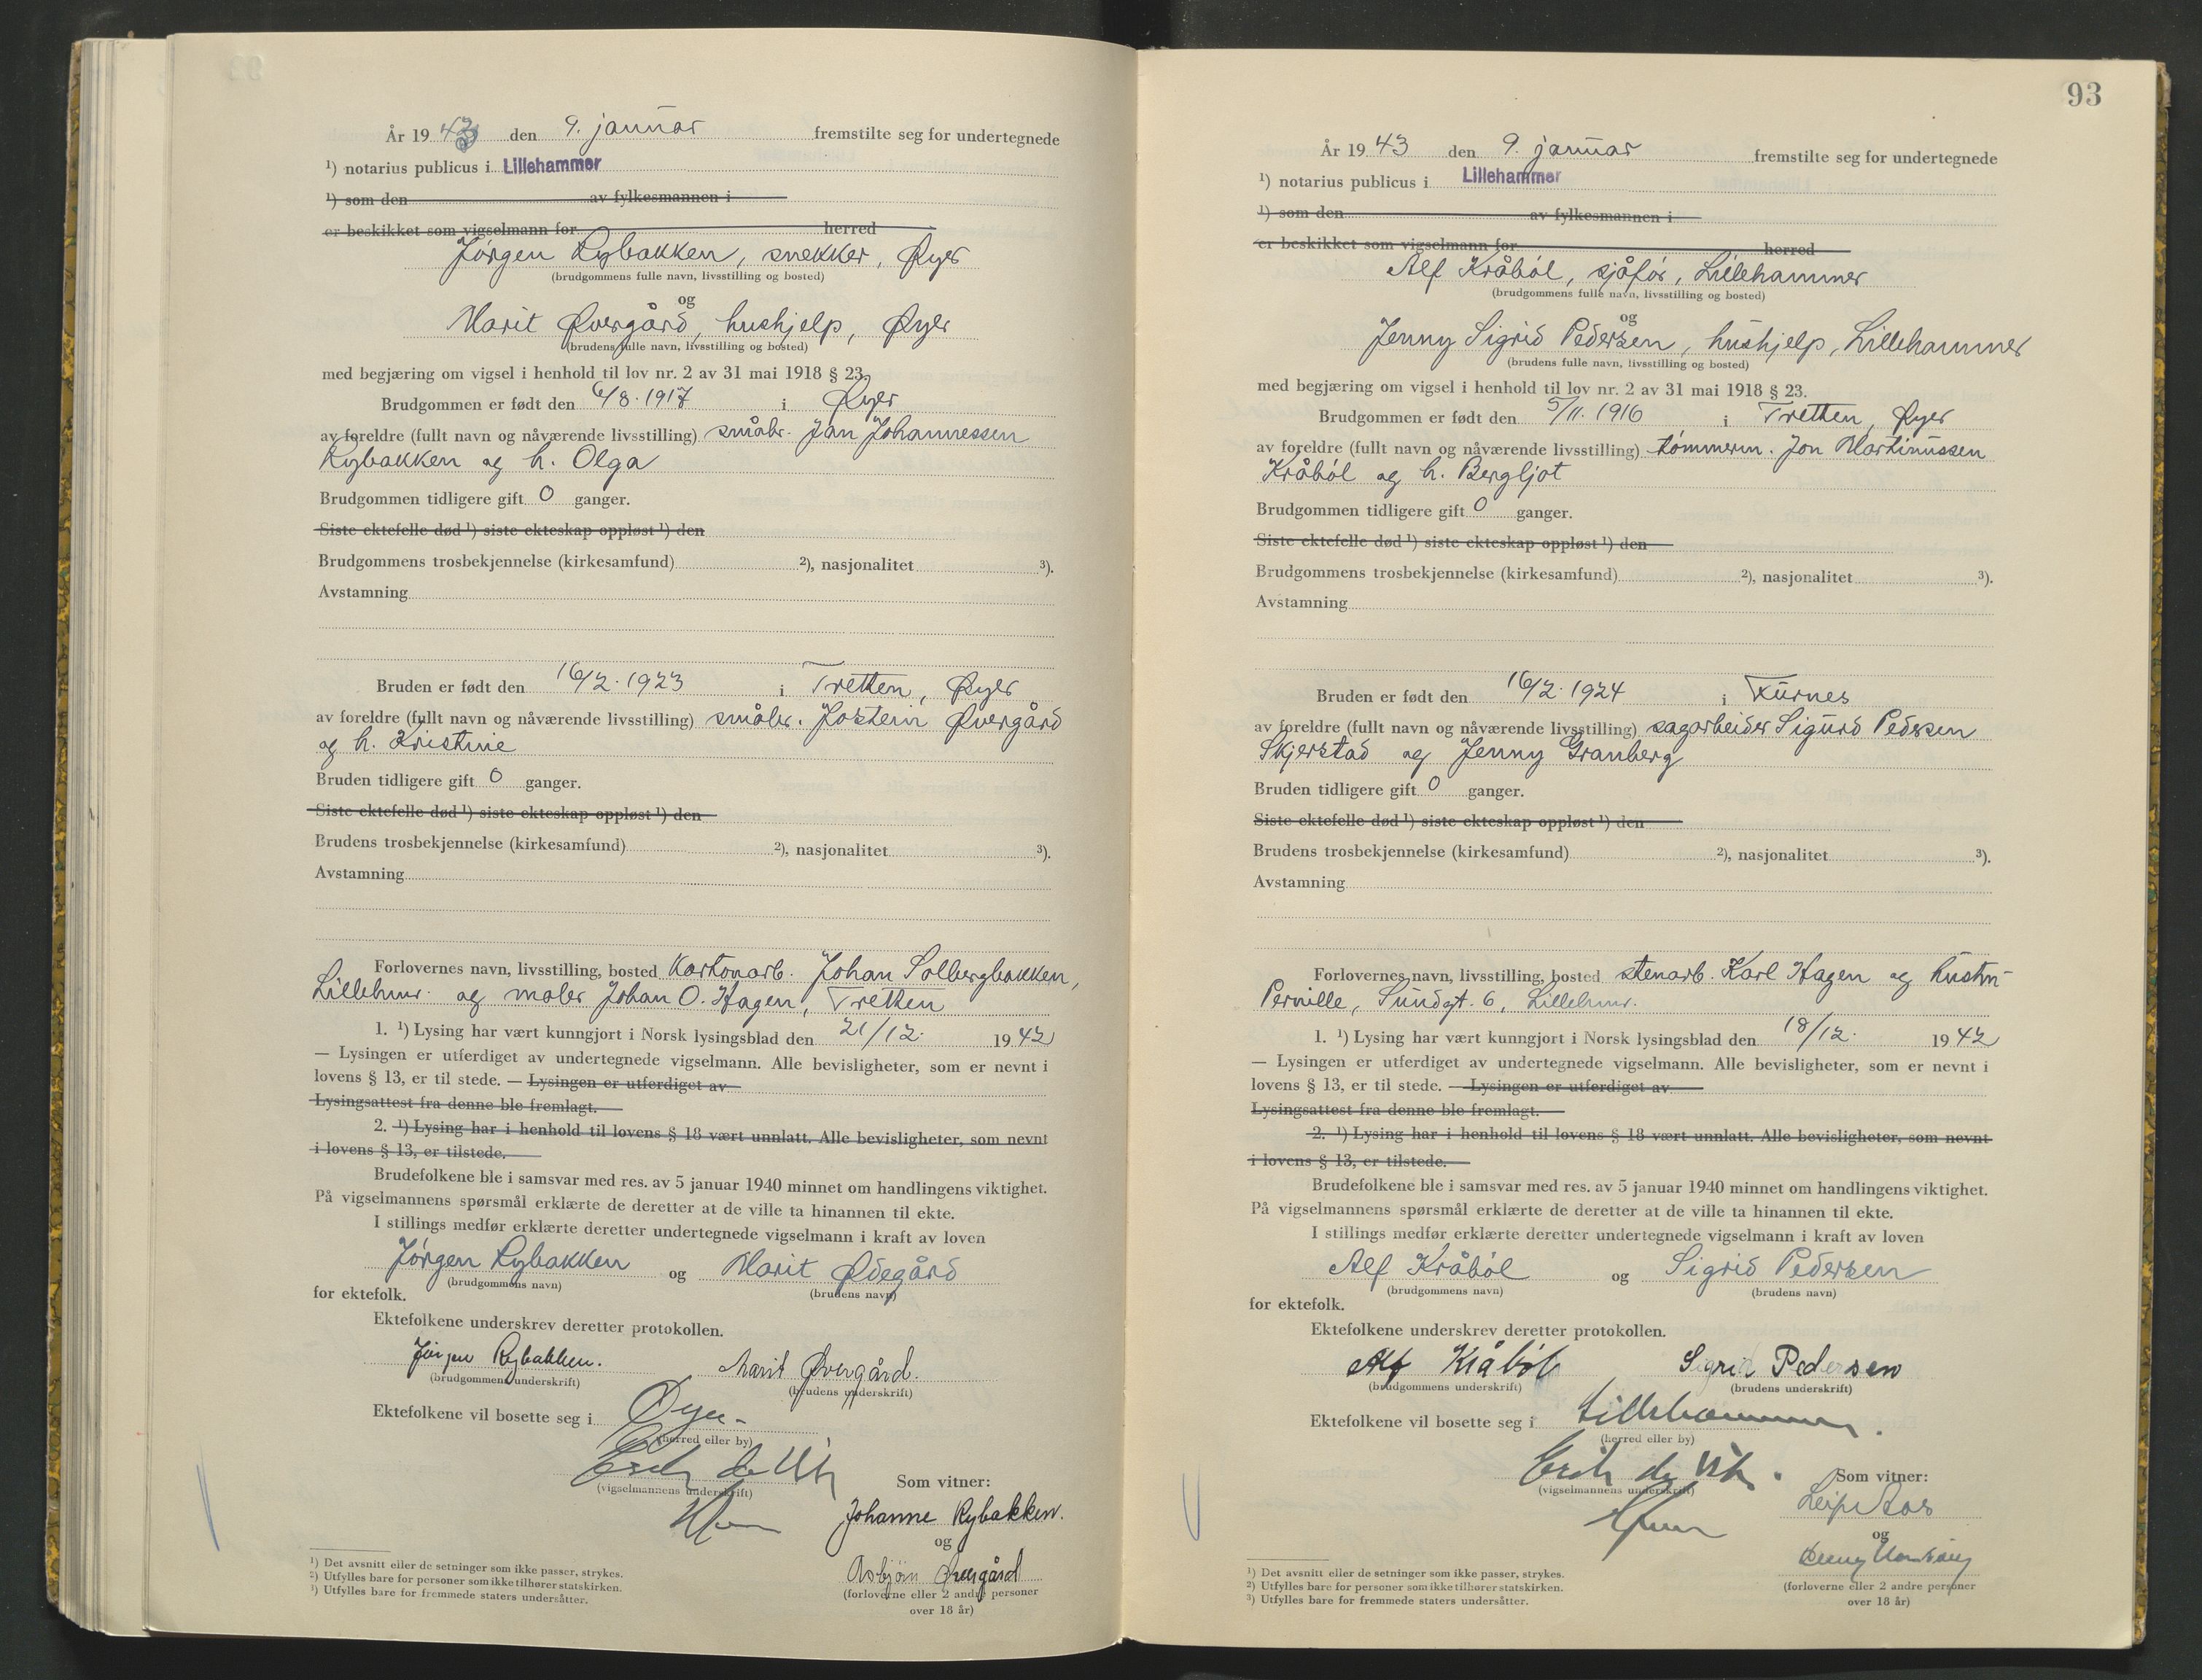 År 1943 den 9. januar fremstilte seg for undertegnede
¹) notarius publicus i Lillehammer
¹) som den av fylkesmannen i
er beskikket som vigselmann for herred
Jørgen Rybakken, snekker, Øyer
(brudgommens fulle navn, livsstilling og bosted)
og
Marit Øvergård, hushjelp, Øyer
(brudens fulle navn, livsstilling og bosted)
med begjæring om vigsel i henhold til lov nr. 2 av 31 mai 1918 § 23.
Brudgommen er født den 6/8. 1917 i Øyer
av foreldre (fullt navn og nåværende livsstilling) småbr. Jan Johannessen
Rybakken og h. Olga
Brudgommen tidligere gift 0 ganger.
Siste ektefelle død ¹) siste ekteskap oppløst ¹) den
Brudgommens trosbekjennelse (kirkesamfund) ²), nasjonalitet ³).
Avstamning
Bruden er født den 16/2. 1923 i Tretten, Øyer
av foreldre (fullt navn og nåværende livsstilling) småbr. Jostein Øvergård
og h. Kristine
Bruden tidligere gift 0 ganger.
Siste ektefelle død ¹) siste ekteskap oppløst ¹) den
Brudens trosbekjennelse (kirkesamfund) ²), nasjonalitet ³).
Avstamning
Forlovernes navn, livsstilling, bosted Kartonarb. Johan Solbergbakken,
Lillehmr. og maler Johan O. Hagen, Tretten
1. ¹) Lysing har vært kunngjort i Norsk lysingsblad den 21/12. 1942
— Lysingen er utferdiget av undertegnede vigselmann. Alle bevisligheter, som er nevnt i
lovens § 13, er til stede. — Lysingen er utferdiget av
Lysingsattest fra denne ble fremlagt.
2. ¹) Lysing har i henhold til lovens § 18 vært unnlatt. Alle bevisligheter, som nevnt
i lovens § 13, er tilstede.
Brudefolkene ble i samsvar med res. av 5 januar 1940 minnet om handlingens viktighet.
På vigselmannens spørsmål erklærte de deretter at de ville ta hinannen til ekte.
I stillings medfør erklærte deretter undertegnede vigselmann i kraft av loven
Jørgen Rybakken og Marit Ødegård
(brudgommens navn) (brudens navn)
for ektefolk.
Ektefolkene underskrev deretter protokollen.
Jörgen Rybakken. Marit Øvergård.
(brudgommens underskrift) (brudens underskrift)
Ektefolkene vil bosette seg i Øyer
(herred eller by)
(vigselmannens underskrift)
Som vitner:
Johanne Rybakken.
og
Asbjørn Øvergård
(forloverne eller 2 andre personer
over 18 år)
¹) Det avsnitt eller de setninger som ikke passer, strykes.
²) Utfylles bare for personer som ikke tilhører statskirken.
³) Utfylles bare for fremmede staters undersåtter.
93
År 1943 den 9. januar fremstilte seg for undertegnede
¹) notarius publicus i Lillehammer
¹) som den av fylkesmannen i
er beskikket som vigselmann for herred
Alf Kråbøl, sjåfør, Lillehammer
(brudgommens fulle navn, livsstilling og bosted)
og
Jenny Sigrid Pedersen, hushjelp, Lillehammer
(brudens fulle navn, livsstilling og bosted)
med begjæring om vigsel i henhold til lov nr. 2 av 31 mai 1918 § 23.
Brudgommen er født den 5/11. 1916 i Tretten, Øyer
av foreldre (fullt navn og nåværende livsstilling) tømmerm. Jon Martinussen
Kråbøl og h. Bergljot
Brudgommen tidligere gift 0 ganger.
Siste ektefelle død ¹) siste ekteskap oppløst ¹) den
Brudgommens trosbekjennelse (kirkesamfund) ²), nasjonalitet ³).
Avstamning
Bruden er født den 16/2. 1924 i Furnes
av foreldre (fullt navn og nåværende livsstilling) sagarbeider Sigurd Pedersen
Skjerstad og Jenny Granberg
Bruden tidligere gift 0 ganger.
Siste ektefelle død ¹) siste ekteskap oppløst ¹) den
Brudens trosbekjennelse (kirkesamfund) ²), nasjonalitet ³).
Avstamning
Forlovernes navn, livsstilling, bosted stenarb. Karl Hagen og hustru
Pernille, Sundgt. 6, Lillehmr.
1. ¹) Lysing har vært kunngjort i Norsk lysingsblad den 18/12. 1942
— Lysingen er utferdiget av undertegnede vigselmann. Alle bevisligheter, som er nevnt i
lovens § 13, er til stede. — Lysingen er utferdiget av
Lysingsattest fra denne ble fremlagt.
2. ¹) Lysing har i henhold til lovens § 18 vært unnlatt. Alle bevisligheter, som nevnt
i lovens § 13, er tilstede.
Brudefolkene ble i samsvar med res. av 5 januar 1940 minnet om handlingens viktighet.
På vigselmannens spørsmål erklærte de deretter at de ville ta hinannen til ekte.
I stillings medfør erklærte deretter undertegnede vigselmann i kraft av loven
Alf Kråbøl og Sigrid Pedersen
(brudgommens navn) (brudens navn)
for ektefolk.
Ektefolkene underskrev deretter protokollen.
Alf Kråbøl Sigrid Pedersen
(brudgommens underskrift) (brudens underskrift)
Ektefolkene vil bosette seg i Lillehammer.
(herred eller by)
(vigselmannens underskrift)
Som vitner:
og
(forloverne eller 2 andre personer
over 18 år)
¹) Det avsnitt eller de setninger som ikke passer, strykes.
²) Utfylles bare for personer som ikke tilhører statskirken.
³) Utfylles bare for fremmede staters undersåtter.